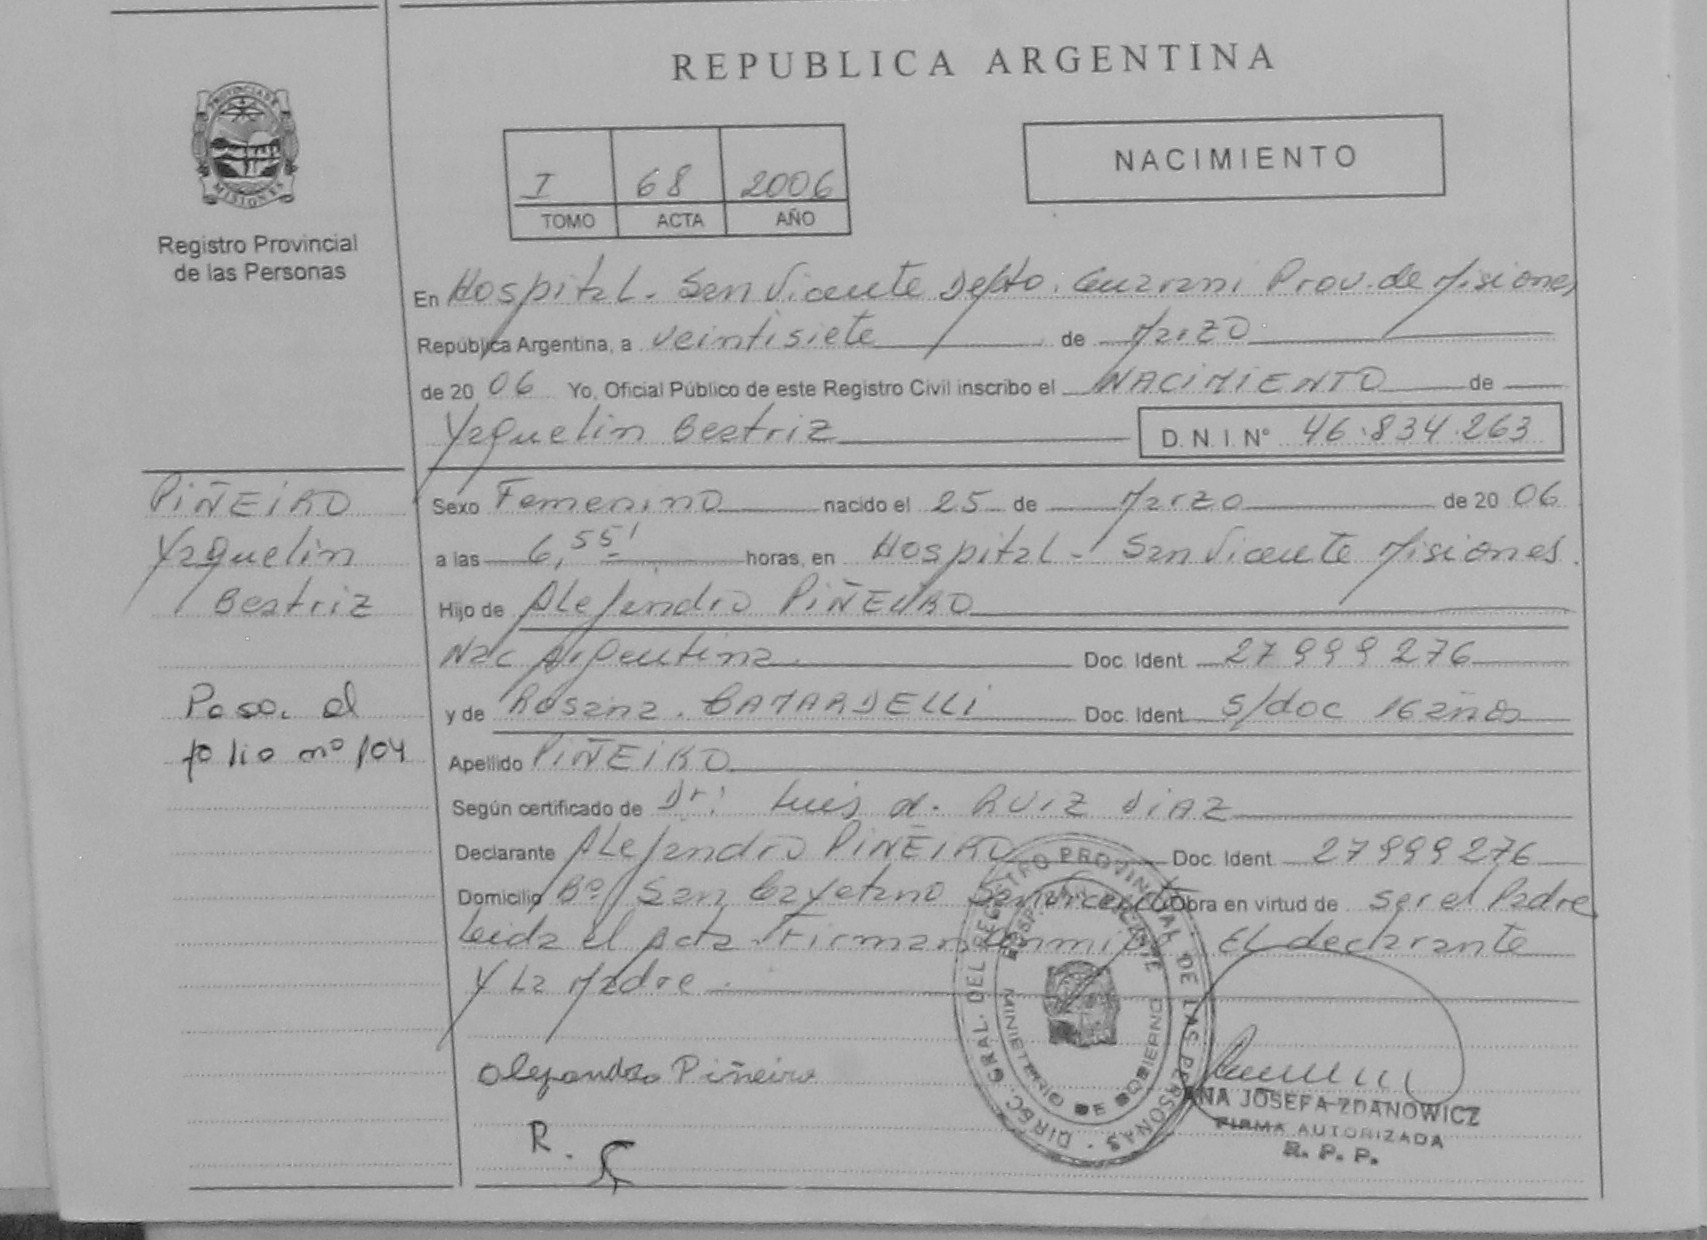 REPUBLICA ARGENTINA
PROVINCIA DE
MISIONES
Registro Provincial
de las Personas
I 68 2006
TOMO ACTA AÑO
NACIMIENTO
En Hospital - San Vicente Depto. Guarani Prov. de Misiones
República Argentina, a veintisiete de Marzo
de 20 06 Yo, Oficial Público de este Registro Civil inscribo el NACIMIENTO de
Yaquelin Beatriz D. N. I. N° 46.834.263
PIÑEIRO
Yaquelin
Beatriz
Pasa al
folio nº 104
Sexo Femenino nacido el 25 de Marzo de 20 06
a las 6,55' horas, en Hospital - San Vicente Misiones.
Hijo de Alejandro PIÑEIRO
Nac Argentina Doc. Ident. 27999276
y de Rosana. CAMARDELLI Doc. Ident. s/doc 16 años
Apellido PIÑEIRO
Según certificado de Dr: Luis A. RUIZ DIAZ
Declarante Alejandro PIÑEIRO Doc. Ident. 27999276
Domicilio Bº San Cayetano San Vicente Obra en virtud de ser el Padre
Leida el Acta Firman conmigo El declarante
Y La Madre
DIREC. GRAL. DEL REGISTRO PROVINCIAL DE LAS PERSONAS
HOSP. SAN VICENTE
MINISTERIO DE GOBIERNO
Alejandro Piñeiro
R. C
ANA JOSEFA ZDANOWICZ
FIRMA AUTORIZADA
R. P. P.